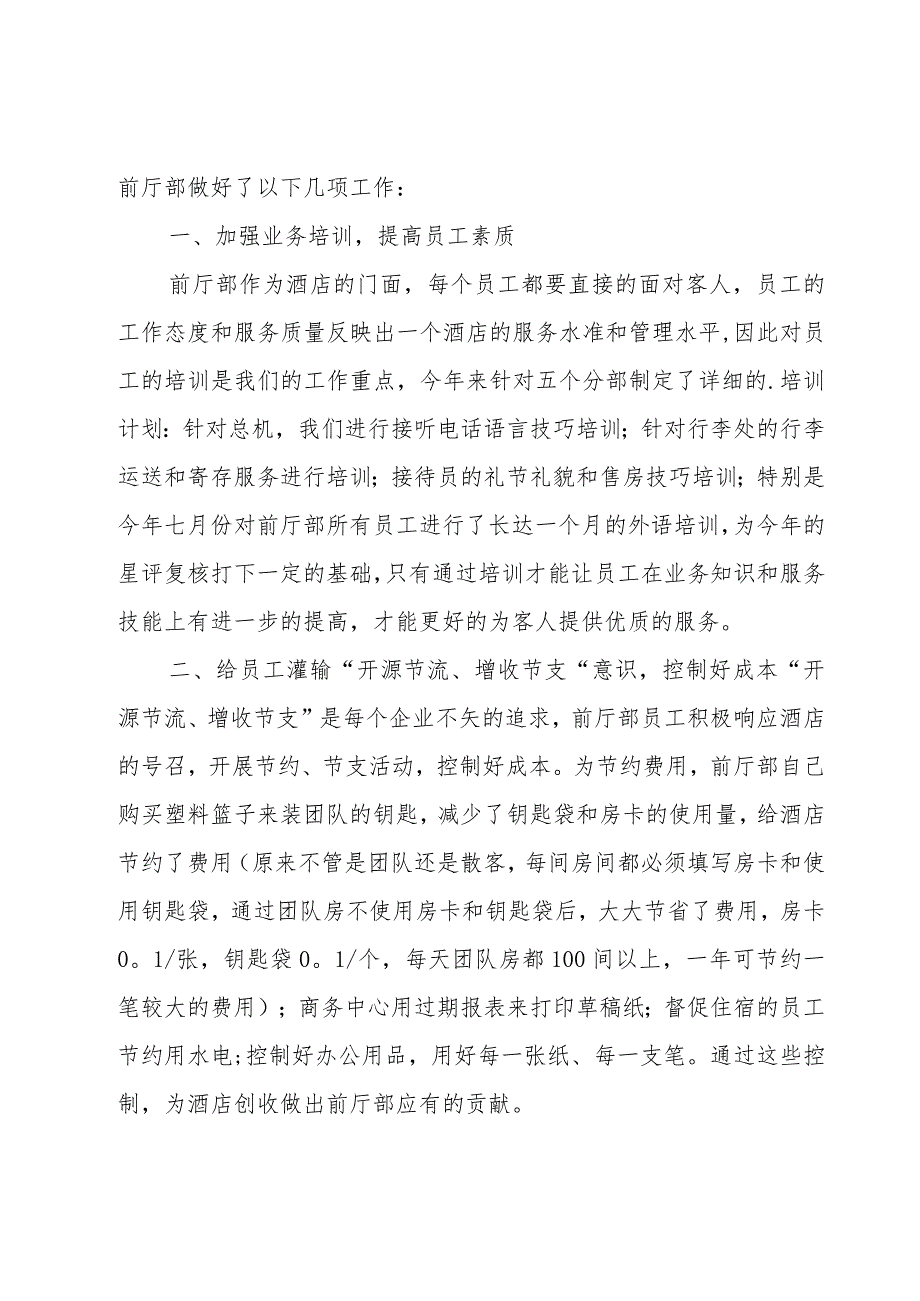 前厅部做好了以下几项工作：
一、加强业务培训，提高员工素质
前厅部作为酒店的门面，每个员工都要直接的面对客人，员工的
工作态度和服务质量反映出一个酒店的服务水准和管理水平,因此对员
工的培训是我们的工作重点，今年来针对五个分部制定了详细的.培训
计划：针对总机，我们进行接听电话语言技巧培训；针对行李处的行李
运送和寄存服务进行培训；接待员的礼节礼貌和售房技巧培训；特别是
今年七月份对前厅部所有员工进行了长达一个月的外语培训,为今年的
星评复核打下一定的基础,只有通过培训才能让员工在业务知识和服务
技能上有进一步的提高，才能更好的为客人提供优质的服务。
二、给员工灌输“开源节流、增收节支“意识，控制好成本“开
源节流、增收节支”是每个企业不矢的追求，前厅部员工积极响应酒店
的号召，开展节约、节支活动，控制好成本。为节约费用，前厅部自己
购买塑料篮子来装团队的钥匙，减少了钥匙袋和房卡的使用量，给酒店
节约了费用（原来不管是团队还是散客，每间房间都必须填写房卡和使
用钥匙袋，通过团队房不使用房卡和钥匙袋后，大大节省了费用，房卡
0。1/张，钥匙袋0。1/个，每天团队房都100间以上，一年可节约一
笔较大的费用）；商务中心用过期报表来打印草稿纸；督促住宿的员工
节约用水电;控制好办公用品，用好每一张纸、每一支笔。通过这些控
制，为酒店创收做出前厅部应有的贡献。